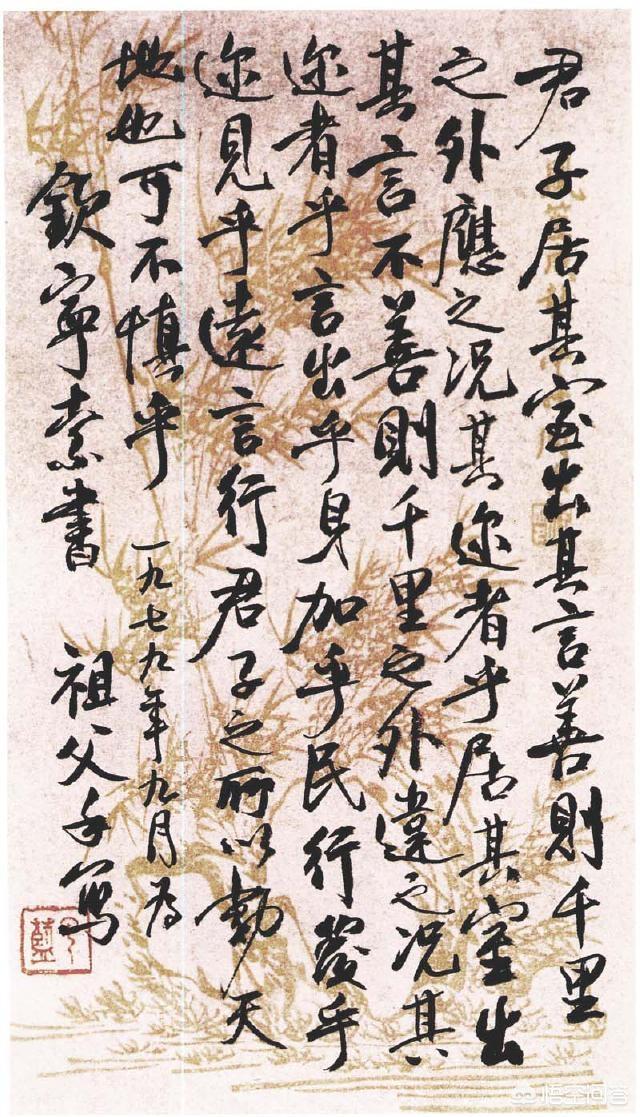 君子居其室出其言善則千里
之外應之况其迩者乎居其室出
其言不善則千里之外違之况其
迩者乎言出乎身加乎民行發乎
迩見乎遠言行君子之所以動天
地也可不慎乎 一九七九年九月为
欽寧索書 祖父手寫
藍
悟空问答